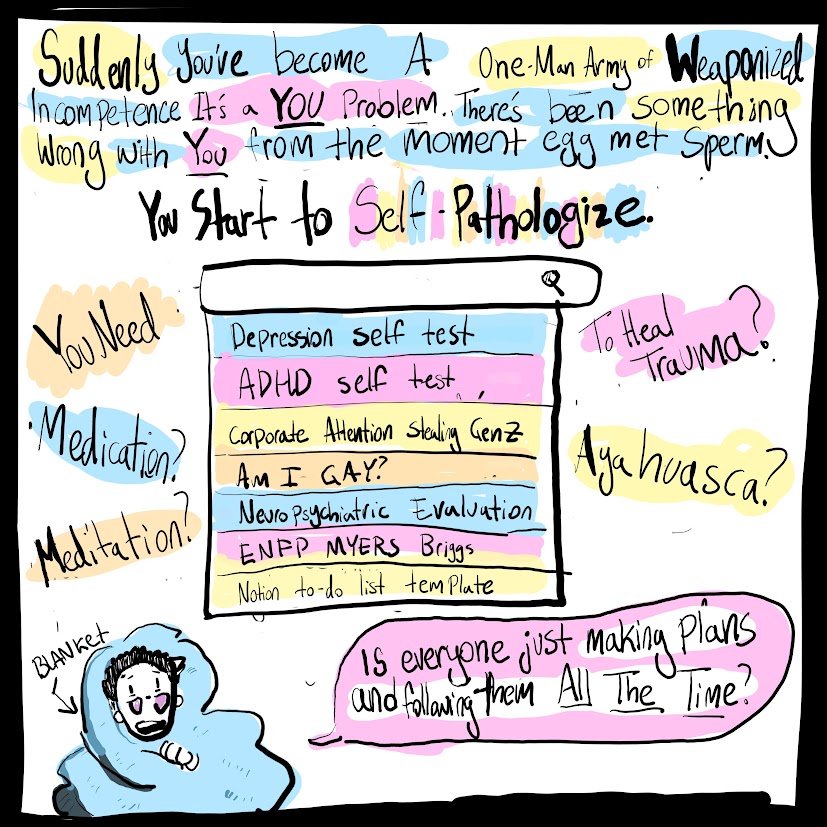 Suddenly You've become A One-Man Army of Weaponized
Incompetence It's a YOU Problem. There's been something
Wrong with You from the Moment egg met Sperm.
You Start to Self-Pathologize.
You Need
Medication?
Meditation?
Depression self test
ADHD self test
Corporate Attention Stealing GenZ
Am I GAY?
Neuropsychiatric Evaluation
ENFP MYERS Briggs
Notion to-do list template
To Heal
Trauma?
Ayahuasca?
BLANKET
Is everyone just making Plans
and following them All The Time?